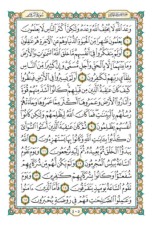 وَعْدَ اللَّهِ لَا يُخْلِفُ اللَّهُ وَعْدَهُ وَلَٰكِنَّ أَكْثَرَ النَّاسِ لَا يَعْلَمُونَ
يَعْلَمُونَ ظَاهِرًا مِّنَ الْحَيَاةِ الدُّنْيَا وَهُمْ عَنِ الْآخِرَةِ هُمْ غَافِلُونَ
أَوَلَمْ يَتَفَكَّرُوا فِي أَنفُسِهِم مَّا خَلَقَ اللَّهُ السَّمَاوَاتِ وَالْأَرْضَ
وَمَا بَيْنَهُمَا إِلَّا بِالْحَقِّ وَأَجَلٍ مُّسَمًّى وَإِنَّ كَثِيرًا مِّنَ النَّاسِ
بِلِقَاءِ رَبِّهِمْ لَكَافِرُونَ أَوَلَمْ يَسِيرُوا فِي الْأَرْضِ فَيَنظُرُوا
كَيْفَ كَانَ عَاقِبَةُ الَّذِينَ مِن قَبْلِهِمْ كَانُوا أَشَدَّ مِنْهُمْ قُوَّةً
وَأَثَارُوا الْأَرْضَ وَعَمَرُوهَا أَكْثَرَ مِمَّا عَمَرُوهَا وَجَاءَتْهُمْ
رُسُلُهُم بِالْبَيِّنَاتِ فَمَا كَانَ اللَّهُ لِيَظْلِمَهُمْ وَلَٰكِن كَانُوا
أَنفُسَهُمْ يَظْلِمُونَ ثُمَّ كَانَ عَاقِبَةَ الَّذِينَ أَسَاءُوا السُّوأَىٰ
أَن كَذَّبُوا بِآيَاتِ اللَّهِ وَكَانُوا بِهَا يَسْتَهْزِئُونَ اللَّهُ
يَبْدَأُ الْخَلْقَ ثُمَّ يُعِيدُهُ ثُمَّ إِلَيْهِ تُرْجَعُونَ وَيَوْمَ تَقُومُ
السَّاعَةُ يُبْلِسُ الْمُجْرِمُونَ وَلَمْ يَكُن لَّهُم مِّن شُرَكَائِهِمْ
شُفَعَاءُ وَكَانُوا بِشُرَكَائِهِمْ كَافِرِينَ وَيَوْمَ
تَقُومُ السَّاعَةُ يَوْمَئِذٍ يَتَفَرَّقُونَ فَأَمَّا الَّذِينَ آمَنُوا
وَعَمِلُوا الصَّالِحَاتِ فَهُمْ فِي رَوْضَةٍ يُحْبَرُونَ